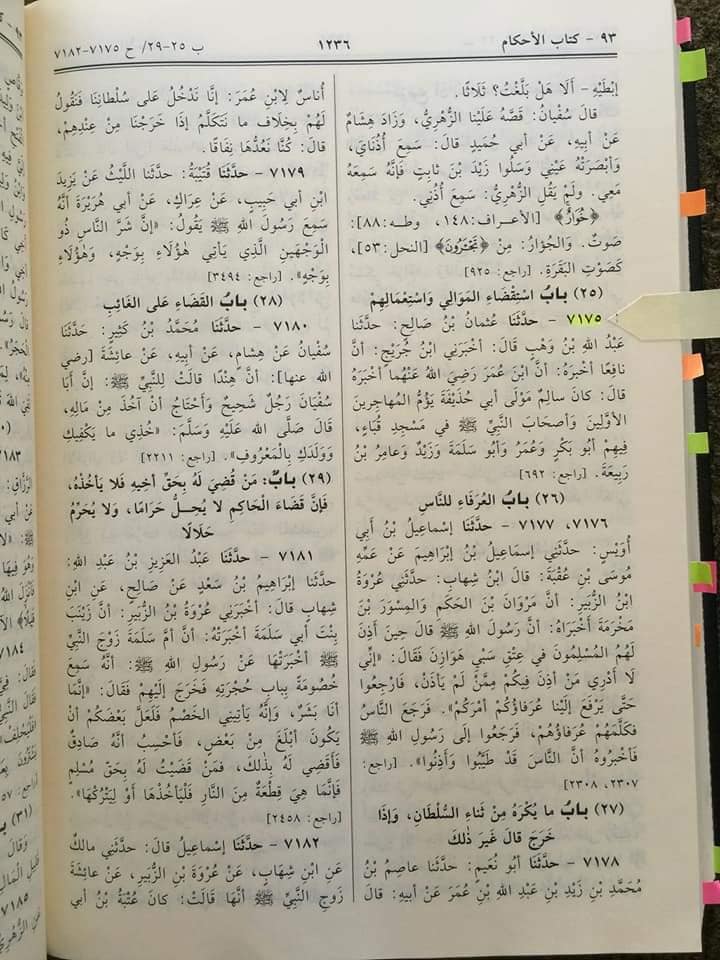 ٩٣ - كتاب الأحكام
١٢٣٦
ب ٢٥-٢٩/ ح ٧١٧٥-٧١٨٢
إبْطَيْهِ - أَلَا هَلْ بَلَّغْتُ؟ ثَلَاثًا.
قَالَ سُفْيَانُ: قَصَّهُ عَلَيْنَا الزُّهْرِيُّ، وَزَادَ هِشَامٌ
عَنْ أَبِيهِ، عَنْ أَبي حُمَيْدٍ قَالَ: سَمِعَ أُذُنَايَ،
وَأَبْصَرَتْهُ عَيْنِي وَسَلُوا زَيْدَ بْنَ ثابِتٍ فَإنَّه سَمِعَهُ
مَعِي. ولَمْ يَقُلِ الزُّهْرِيُّ: سَمِعَ أُذُنِي.
﴿خُوَارٌ﴾ [الأعراف: ١٤٨، وطه: ٨٨]:
صَوتٌ. والجُؤارُ: مِنْ ﴿تَجْـَٔرُونَ﴾ [النحل: ٥٣]،
كَصَوْتِ البَقَرَةِ. [راجع: ٩٢٥]
(٢٥) بابُ اسْتِقْضَاءِ المَوَالِي وَاسْتِعْمَالِهِمْ
٧١٧٥ - حدَّثَنَا عُثمانُ بْنُ صَالِحٍ: حدَّثنا
عَبْدُ اللهِ بْنُ وَهْبٍ قَالَ: أخبَرَني ابْنُ جُرَيْجٍ: أنَّ
نافِعًا أخْبَرَهُ: أنَّ ابْنَ عُمَرَ رَضِيَ اللهُ عَنْهُمَا أخْبَرَهُ
قالَ: كانَ سالِمٌ مَوْلَى أبي حُذَيْفَةَ يَؤُمُّ المُهاجِرِينَ
الأوَّلِينَ وَأصْحَابَ النَّبِيِّ ﷺ في مَسْجِدِ قُبَاءٍ،
فِيهِمْ أبُو بَكْرٍ وعُمَرُ وَأبُو سَلَمَةَ وَزَيْدٌ وَعامِرُ بْنُ
رَبِيعَةَ. [راجع: ٦٩٢]
(٢٦) بابُ العُرَفَاءِ لِلنَّاسِ
٧١٧٦، ٧١٧٧ - حدَّثَنَا إسْمَاعِيلُ بْنُ أبي
أُوَيْسٍ: حدَّثَنِي إسمَاعِيلُ بْنُ إبْرَاهِيمَ عَنْ عَمِّهِ
مُوسَى بْنِ عُقْبَةَ: قالَ ابْنُ شِهابٍ: حدَّثَنِي عُرْوَةُ
ابْنُ الزُّبَيْرِ: أنَّ مَرْوَانَ بْنَ الحَكَمِ وَالمِسْوَرَ بْنَ
مَخْرَمَةَ أخْبَرَاهُ: أنَّ رَسُولَ اللهِ ﷺ قالَ حِينَ أذِنَ
لَهُمُ المُسْلِمُونَ في عِتْقِ سَبْيِ هَوَازِنَ فَقَالَ: «إنِّي
لَا أدْرِي مَنْ أذِنَ فِيكُمْ مِمَّنْ لَمْ يَأذَنْ، فَارْجِعُوا
حَتَّى يَرْفَعَ إلَيْنَا عُرَفاؤُكُمْ أمْرَكُمْ». فَرَجَعَ النَّاسُ
فَكَلَّمَهُمْ عُرَفاؤُهُمْ، فَرَجَعُوا إلَى رَسُولِ اللهِ ﷺ
فَأخْبَرُوهُ أنَّ النَّاسَ قَدْ طَيَّبُوا وَأذِنُوا». [راجع:
٢٣٠٧، ٢٣٠٨]
(٢٧) بابُ ما يُكْرَهُ مِنْ ثَناءِ السُّلْطَانِ، وَإذَا
خَرَجَ قَالَ غَيرَ ذٰلكَ
٧١٧٨ - حدَّثَنَا أبُو نُعَيْمٍ: حدَّثَنا عاصِمُ بْنُ
مُحَمَّدِ بْنِ زَيْدِ بْنِ عَبْدِ اللهِ بْنِ عُمَرَ عَنْ أبِيهِ: قالَ
أُناسٌ لِابْنِ عُمَرَ: إنَّا نَدْخُلُ عَلى سُلْطَانِنَا فَنَقُولُ
لَهُمْ بِخِلَافِ ما نَتَكَلَّمُ إذَا خَرَجْنَا مِنْ عِنْدِهِمْ،
قالَ: كُنَّا نَعُدُّهَا نِفَاقًا.
٧١٧٩ - حدَّثَنَا قُتَيْبَةُ: حدَّثَنَا اللَّيْثُ عَنْ يَزِيدَ
ابْنِ أبي حَبِيبٍ، عَنْ عِرَاكٍ، عَنْ أبي هُرَيْرَةَ أنَّهُ
سَمِعَ رَسُولَ اللهِ ﷺ يَقُولُ: «إنَّ شَرَّ النَّاسِ ذُو
الْوَجْهَيْنِ الَّذِي يَأتِي هٰؤُلَاءِ بِوَجْهٍ، وَهٰؤُلَاءِ
بِوَجْهٍ». [راجع: ٣٤٩٤]
(٢٨) بابُ القَضَاءِ عَلى الغَائِبِ
٧١٨٠ - حدَّثَنَا مُحَمَّدُ بْنُ كَثِيرٍ: حَدَّثَنَا
سُفْيَانُ عَنْ هِشامٍ، عَنْ أبِيهِ، عَنْ عائِشَةَ [رضي
الله عنها]: أنَّ هِنْدًا قالَتْ لِلنَّبِيِّ ﷺ: إنَّ أبَا
سُفْيَانَ رَجُلٌ شَحِيحٌ وَأحْتاجُ أنْ آخُذَ مِنْ مَالِهِ،
قَالَ صَلَّى اللهُ عَلَيْهِ وَسَلَّمَ: «خُذِي ما يَكْفِيكِ
وَوَلَدَكِ بِالْمَعْرُوفِ». [راجع: ٢٢١١]
(٢٩) بابُ: مَنْ قُضِيَ لَهُ بِحَقِّ أخِيهِ فَلا يَأخُذْهُ،
فَإنَّ قَضَاءَ الْحَاكِمِ لا يُحِلُّ حَرَامًا، وَلا يُحَرِّمُ
حَلَالًا
٧١٨١ - حدَّثَنَا عَبْدُ العَزِيزِ بْنُ عَبْدِ اللهِ:
حدَّثَنا إبْرَاهِيمُ بْنُ سَعْدٍ عَنْ صَالِحٍ، عَنِ ابْنِ
شِهابٍ قالَ: أخْبَرَنِي عُرْوَةُ بْنُ الزُّبَيْرِ: أنَّ زَيْنَبَ
بِنْتَ أبي سَلَمَةَ أخْبَرَتْهُ: أنَّ أمَّ سَلَمَةَ زَوْجَ النَّبِيِّ
ﷺ أخْبَرَتْهَا عَنْ رَسُولِ اللهِ ﷺ: أنَّهُ سَمِعَ
خُصُومَةً بِبابِ حُجْرَتِهِ فَخَرَجَ إلَيْهِمْ فَقالَ: «إنَّمَا
أنَا بَشَرٌ، وَإنَّهُ يَأتِينِي الخَصْمُ فَلَعَلَّ بَعْضَكُمْ أنْ
يَكُونَ أبْلَغَ مِنْ بَعْضٍ، فَأحْسِبُ أنَّهُ صَادِقٌ
فَأقْضِي لَهُ بِذٰلِكَ، فَمَنْ قَضَيْتُ لَهُ بِحَقِّ مُسْلِمٍ
فَإنَّما هِيَ قِطْعَةٌ مِنَ النَّارِ فَلْيَأخُذْهَا أوْ لِيَتْرُكْهَا».
[راجع: ٢٤٥٨]
٧١٨٢ - حدَّثَنَا إسْمَاعِيلُ قَالَ: حدَّثَنِي مالكٌ
عَنِ ابْنِ شِهَابٍ، عَنْ عُرْوَةَ بْنِ الزُّبَيْرِ، عَنْ عائِشَةَ
زَوجِ النَّبِيِّ ﷺ أنَّهَا قالَتْ: كانَ عُتْبَةُ بْنُ أبي